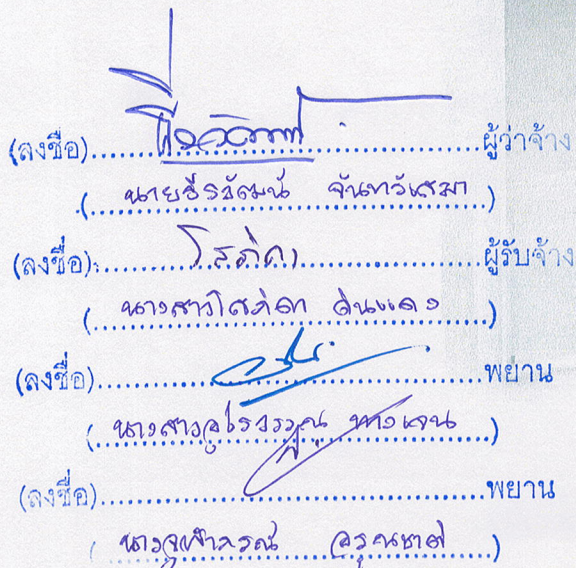 (ลงชื่อ)..............................ผู้ว่าจ้าง
(นายธีรวัฒน์ จันทวีเสมา)
(ลงชื่อ)...โสภิดา...ผู้รับจ้าง
(นางสาวโสภิดา ดินแดง)
(ลงชื่อ)..............................พยาน
(นางสาวอุไรวรรณ ทางเจน)
(ลงชื่อ)..............................พยาน
(นางจุฬาภรณ์ อรุณชาติ)